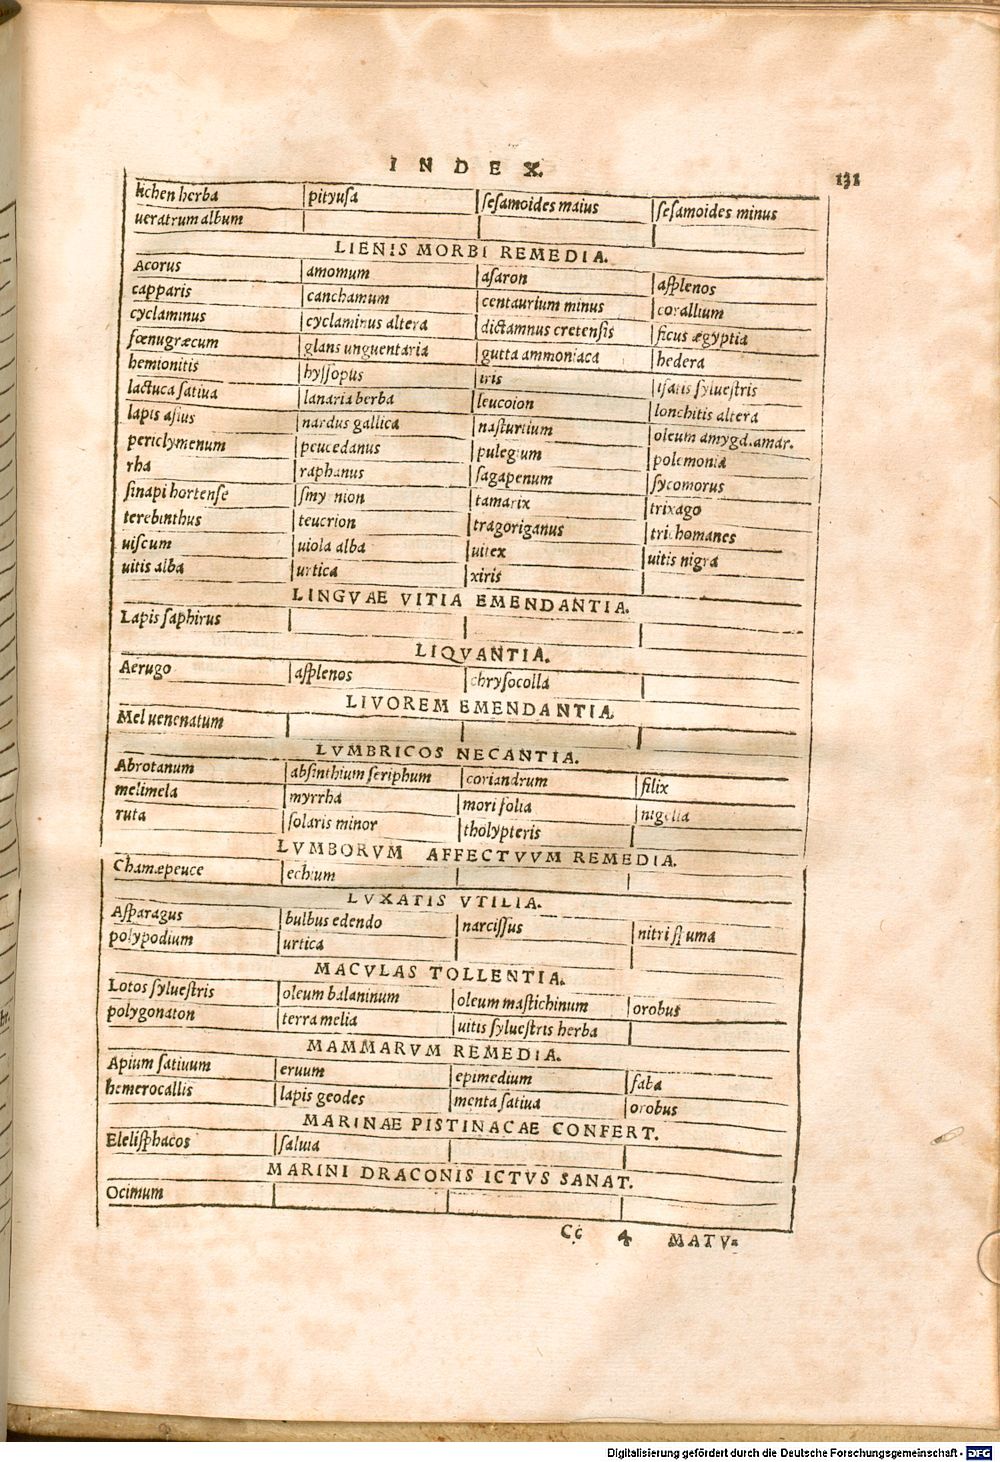 INDEX. 131
lichen herba | pityusa | sesamoides maius | sesamoides minus
ueratrum album
LIENIS MORBI REMEDIA.
Acorus | amomum | asaron | asplenos
capparis | canchamum | centaurium minus | corallium
cyclaminus | cyclaminus altera | dictamnus cretensis | ficus ægyptia
fœnugræcum | glans unguentaria | gutta ammoniaca | hedera
hemionitis | hyssopus | iris | isatis syluestris
lactuca satiua | lanaria herba | leucoion | lonchitis altera
lapis asius | nardus gallica | nasturtium | oleum amygd.amar.
periclymenum | peucedanus | pulegium | polemonia
rha | raphanus | sagapenum | sycomorus
sinapi hortense | smyrnion | tamarix | trixago
terebinthus | teucrion | tragoriganus | trichomanes
uiscum | uiola alba | uitex | uitis nigra
uitis alba | urtica | xiris
LINGVAE VITIA EMENDANTIA.
Lapis saphirus
LIQVANTIA.
Aerugo | asplenos | chrysocolla
LIVOREM EMENDANTIA.
Mel uenenatum
LVMBRICOS NECANTIA.
Abrotanum | absinthium seriphum | coriandrum | filix
melimela | myrrha | mori folia | nigella
ruta | solaris minor | tholypteris
LVMBORVM AFFECTVVM REMEDIA.
Chamæpeuce | echium
LVXATIS VTILIA.
Asparagus | bulbus edendo | narcissus | nitri spuma
polypodium | urtica
MACVLAS TOLLENTIA.
Lotos syluestris | oleum balaninum | oleum mastichinum | orobus
polygonaton | terra melia | uitis syluestris herba
MAMMARVM REMEDIA.
Apium satiuum | eruum | epimedium | faba
hemerocallis | lapis geodes | menta satiua | orobus
MARINAE PISTINACAE CONFERT.
Elelisphacos | saluia
MARINI DRACONIS ICTVS SANAT.
Ocimum
Cc 4 MATV=
Digitalisierung gefördert durch die Deutsche Forschungsgemeinschaft - DFG